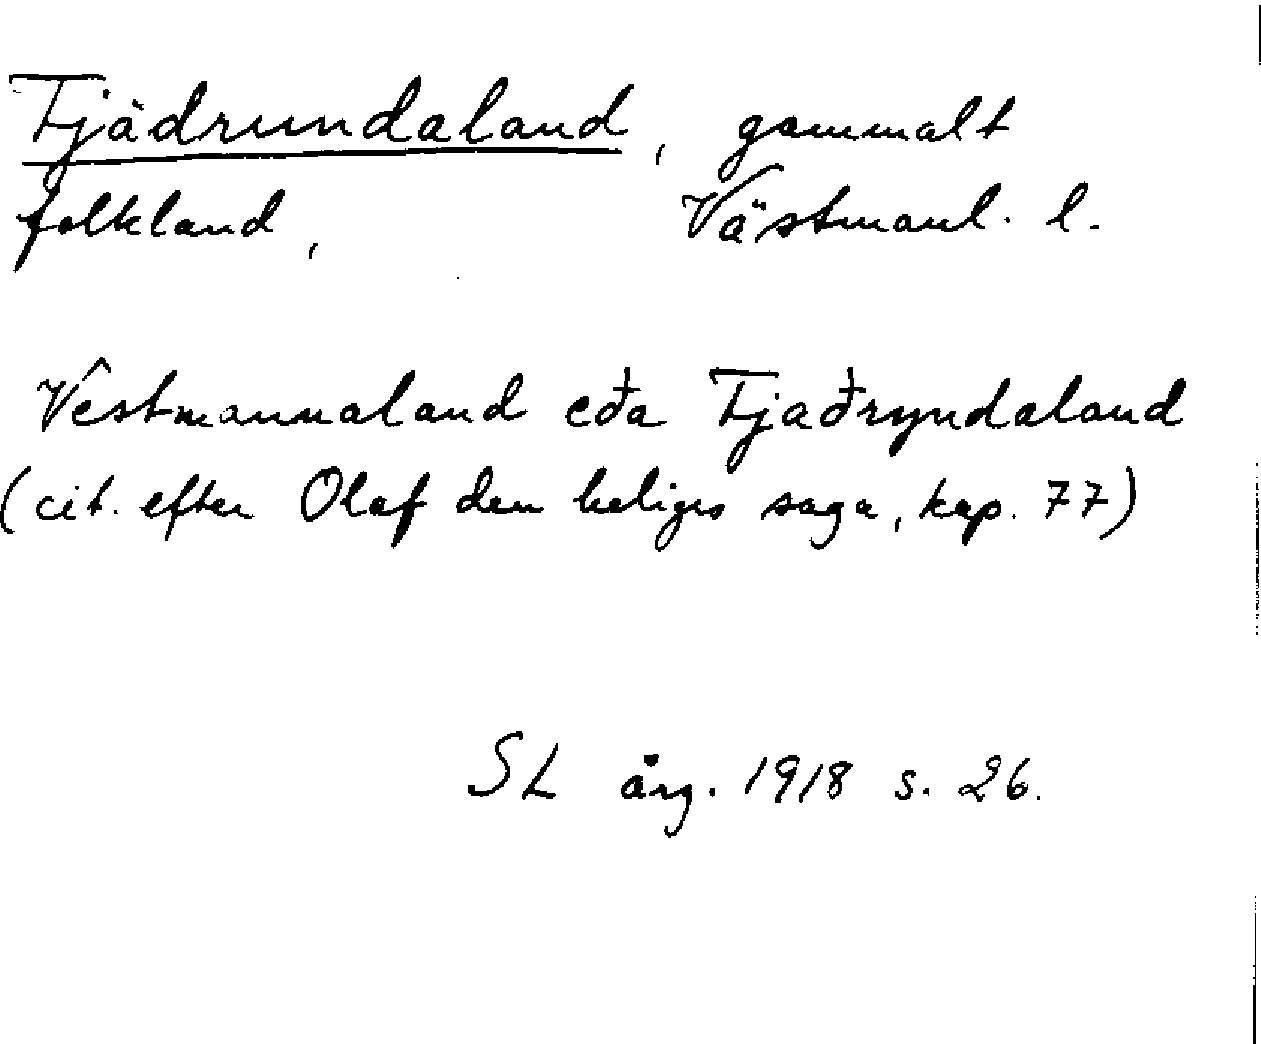 Fjädrundaland, gammalt
folkland, Västmanl. l.
Vestmannaland eða Fjaðryndaland
(cit. efter Olaf den heliges saga, kap. 77)
SL årg. 1918 s. 26.